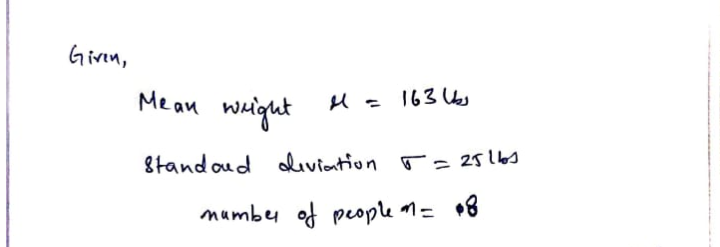 Given,
Mean weight μ = 163 lbs
Standard deviation σ = 25 lbs
number of people n = 08